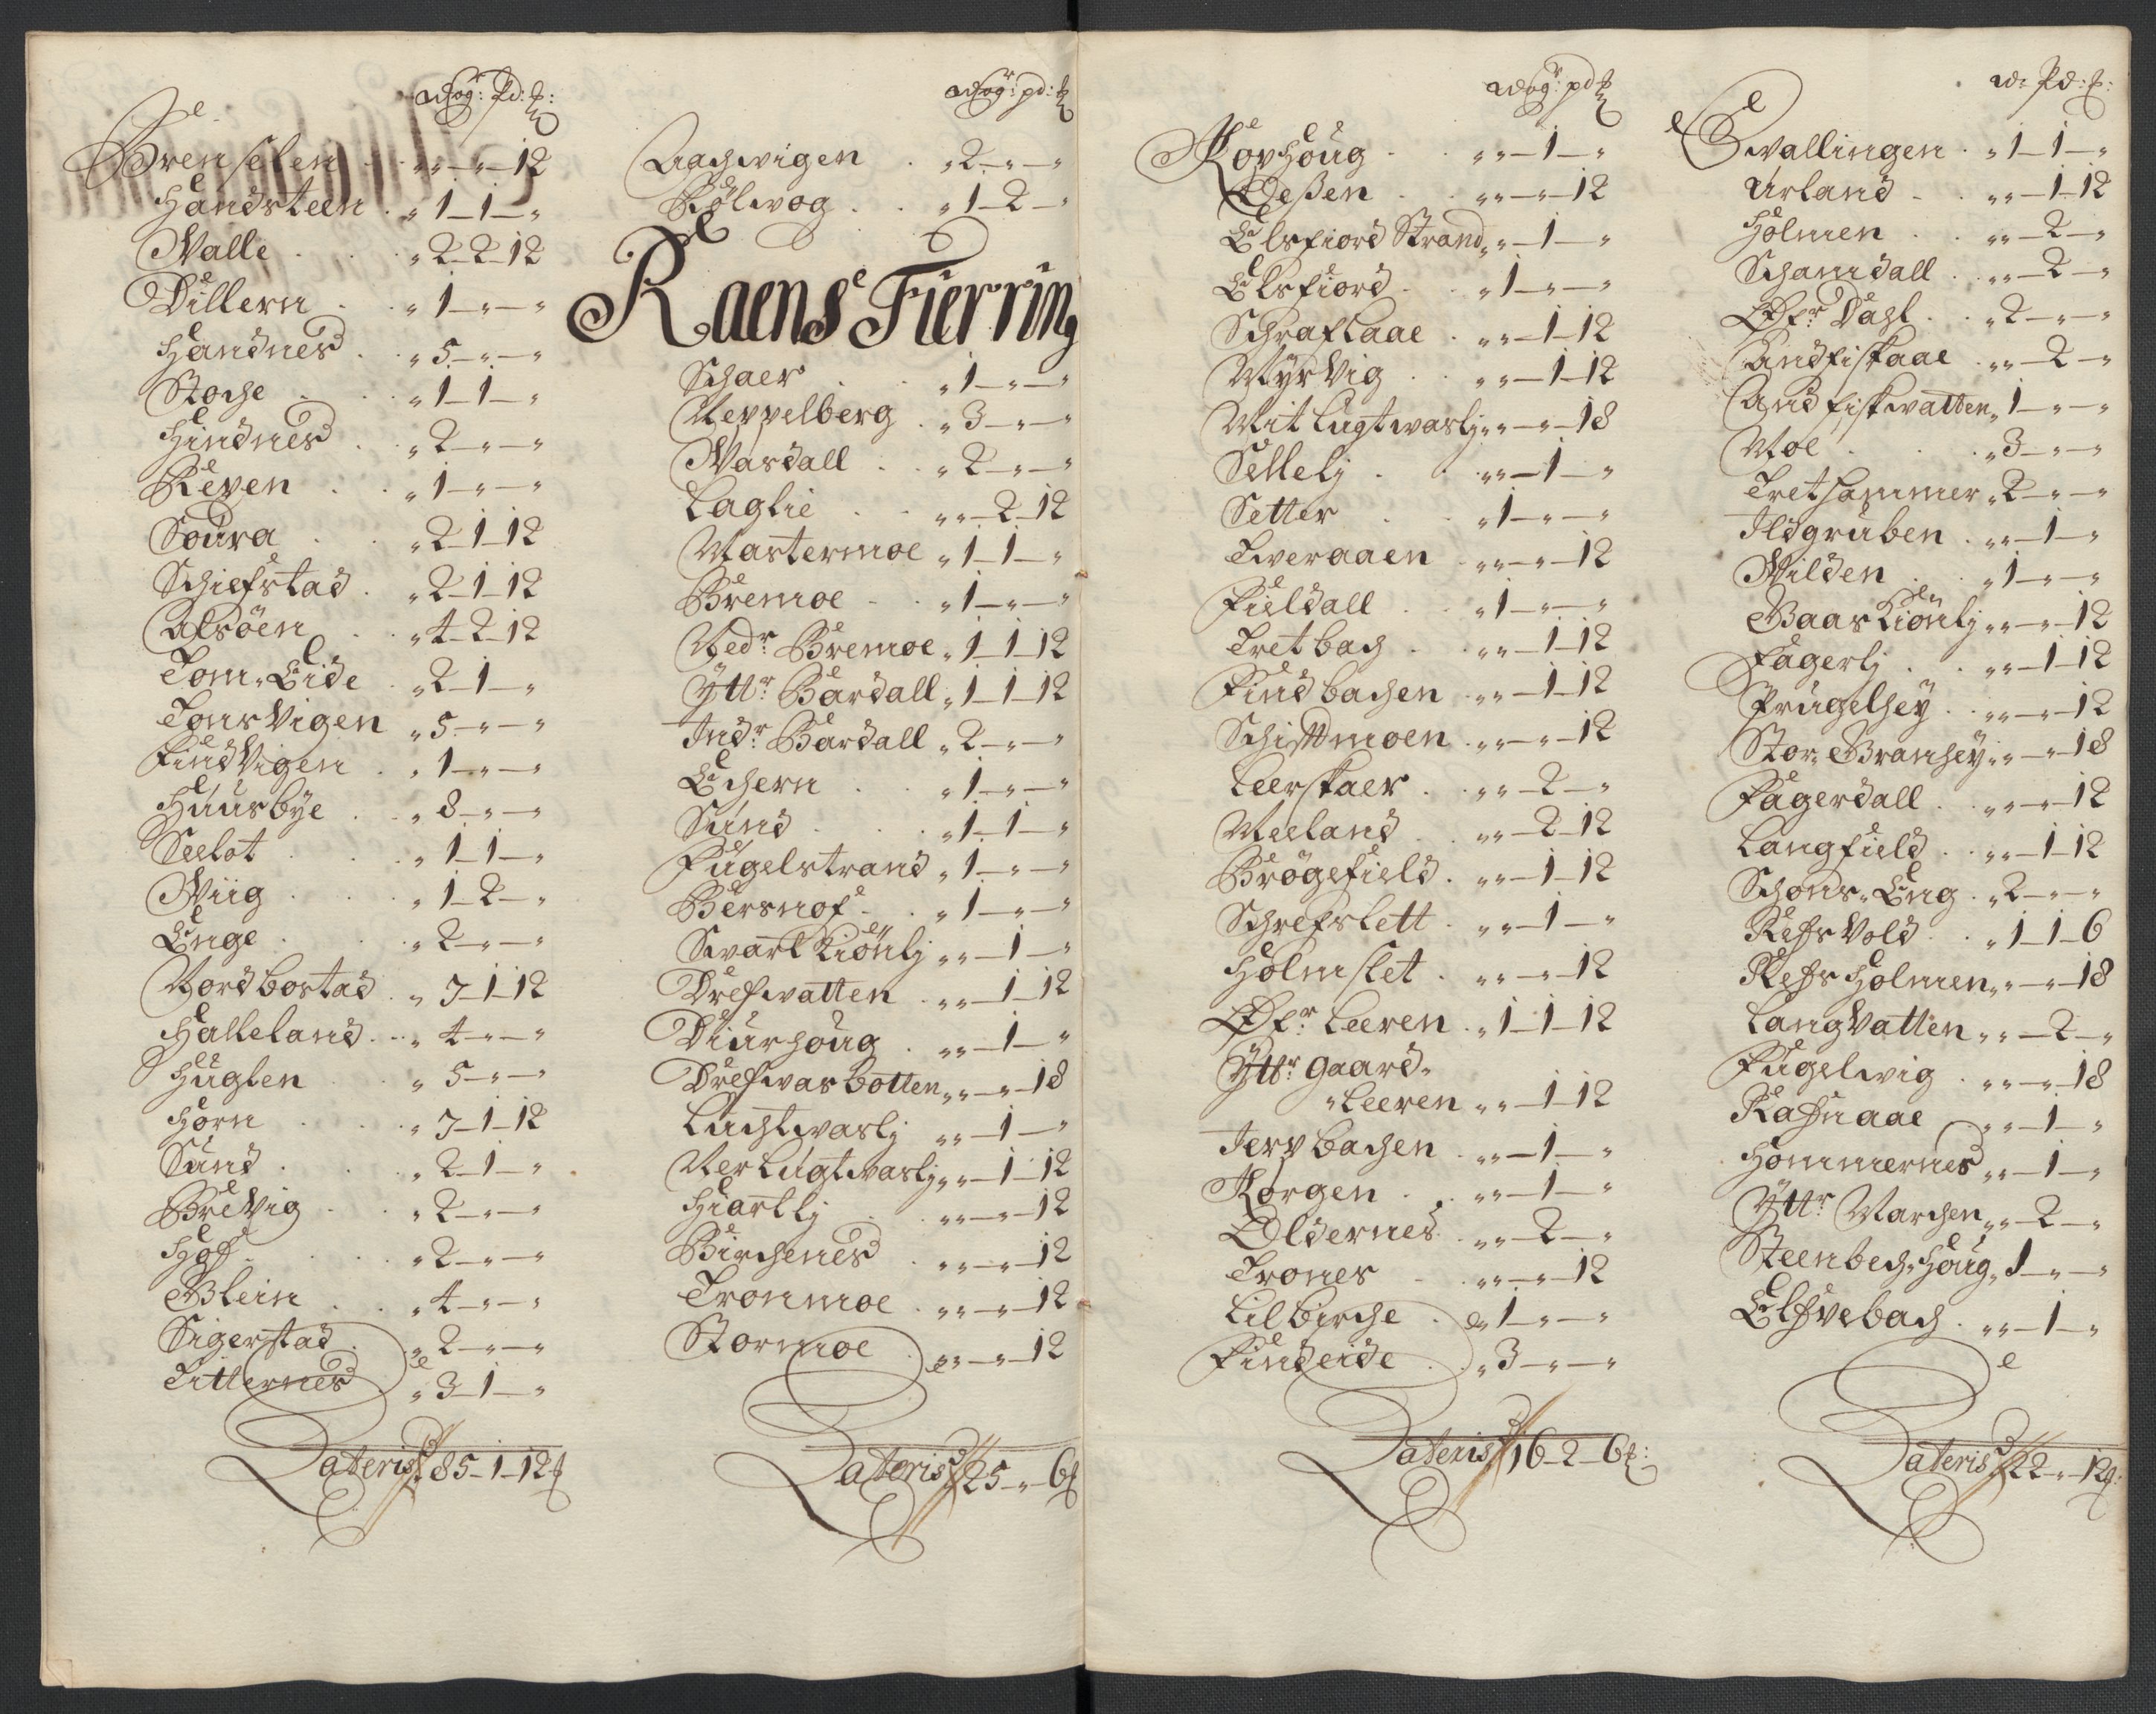 Wog: Pd: £:
Brenselen . „ „ – „ – 12
Handsteen . „ 1 – 1 – „
Walle . . „ 2 – 2 – 12
Dillern . „ 1 – „ – „
Handnes . „ 5 – „ – „
Stoche . . „ 1 – 1 – „
Hindnes . „ 2 – „ – „
Reven . . „ 1 – „ – „
Soura . . „ 2 – 1 – 12
Schiefstad . „ 2 – 1 – 12
Alsöen . „ 4 – 2 – 12
Tom „ Eide . „ 2 – 1 – „
Tons Vigen „ 5 – „ – „
Find Vigen . „ 1 – „ – „
Huusbye . „ 8 – „ – „
Seelot . . „ 1 – 1 – „
Wiig . . „ 1 – 2 – „
Enge . . „ 2 – „ – „
Nordbostad . „ 7 – 1 – 12
Halleland . „ 4 – „ – „
Huglen . „ 5 – „ – „
Horn . . „ 7 – 1 – 12
Sund . . „ 2 – 1 – „
Brevig . . „ 2 – „ – „
Hof . . „ 2 – „ – „
Blein . . „ 4 – „ – „
Sigerstad . „ 2 – „ – „
Titternes . „ 3 – 1 – „
Lateris 85 – 1 – 12 £
Wogr: pd: £
Aachwigen . „ 2 – „ – „
Kölwog . . „ 1 – 2 – „
Raens Fierring
Schaer . . „ 1 – „ – „
Neppelberg . „ 3 – „ – „
Wasdall . . „ 2 – „ – „
Laglie . . „ „ – 2 – 12
Mastermoe „ 1 – 1 – „
Bremoe . . „ 1 – „ – „
Nedr: Bremoe „ 1 – 1 – 12
Yttr: Bardall „ 1 – 1 – 12
Indr: Bardall „ 2 – „ – „
Echern . . „ 1 – „ – „
Sund . . „ 1 – 1 – „
Fugelstrand „ 1 – „ – „
Bersnof . „ 1 – „ – „
Swart Kiönlj „ „ – 1 – „
Drefwatten . „ „ – 1 – 12
Diurhoug . „ „ – 1 – „
Drefwasbotten „ „ – „ – 18
Luchtwaslj „ „ – 1 – „
Ner Lugtwaslj „ „ – 1 – 12
Hiartlj . „ „ – „ – 12
Birchenes . „ „ – „ – 12
Tronmoe . „ „ – „ – 12
Stormoe . „ „ – „ – 12
Lateris 25 – „ – 6 £
Wogr: pd £
Kovhoug . „ „ – 1 – „
Deßen . „ „ – „ – 12
Elsfiord Strand „ „ – 1 – „
Elsfiord . „ 1 – „ – „
Schraflaae . „ „ – 1 – 12
Myrvig . . „ „ – 1 – 12
Mit Lugtwaslj „ „ – „ – 18
Sellelj . . „ „ – 1 – „
Setter . . „ 1 – „ – „
Tweraaen . „ „ – „ – 12
Fieldall . . „ 1 – „ – „
Tretbach . „ „ – 1 – 12
Findbachen . „ „ – 1 – 12
Schittmoen . „ „ – „ – 12
Leerskaer . „ „ – 2 – „
Meeland . „ „ – 2 – 12
Brögefield . „ „ – 1 – 12
Schrefslett . „ „ – 1 – „
Holmslet . „ „ – „ – 12
Öfr: Leeren . „ 1 – 1 – 12
Yttr: gaard „
„ Leeren „ „ – 1 – 12
Jervbachen . „ „ – 1 – „
Korgen . . „ „ – 1 – „
Oldernes . „ „ – 2 – „
Trones . „ „ – „ – 12
Lilbirche . „ 1 – „ – „
Findeide . „ 3 – „ – „
Lateris 16 – 2 – 6 £:
W: Pd: £:
Swallingen . „ 1 – 1 – „
Urland . . „ „ – 1 – 12
Holmen . . „ „ – 2 – „
Schamdall . „ „ – 2 – „
Öfr: Dahl . „ 2 – „ – „
Andfiskaae . „ „ – 2 – „
Andfiskwatten „ 1 – „ – „
Moe . . „ 3 – „ – „
Trethammer „ 2 – „ – „
Ildgruben . „ „ – 1 – „
Wilden . . „ 1 – „ – „
Baas Kiönlj „ „ – „ – 12
Fagerlj . . „ „ – 1 – 12
Frugelhey . „ „ – „ – 12
Stor „ Branhey „ „ – „ – 18
Fagerdall . „ „ – „ – 12
Langfield . „ „ – 1 – 12
Schons „ Eng . „ 2 – „ – „
Refs Vold . „ 1 – 1 – 6
Refs Holmen „ „ – „ – 18
Lang Vatten „ „ – 2 – „
Fugelwig . „ „ – „ – 18
Rafnaae . „ „ – 1 – „
Hommernes „ „ – 1 – „
Yttr: Marchen „ „ – 2 – „
Steenbech „ Houg „ 1 – „ – „
Elfvebach . „ „ – 1 – „
Lateris 22 – „ – 12 £: